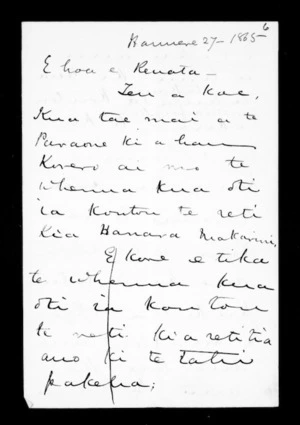 6
Hanuere 27 - 1865
E hoa e Renata -
Tena a koe,
Kua tae mai a te
Paraone ki a hau
Korero ai mo te
whenua kua oti
ia koutou te reti
kia Hanara Makarini,
E kore e tika
te whenua kua
oti ia koutou
te reti kia retitia
ano ki te tahi
pakeha;